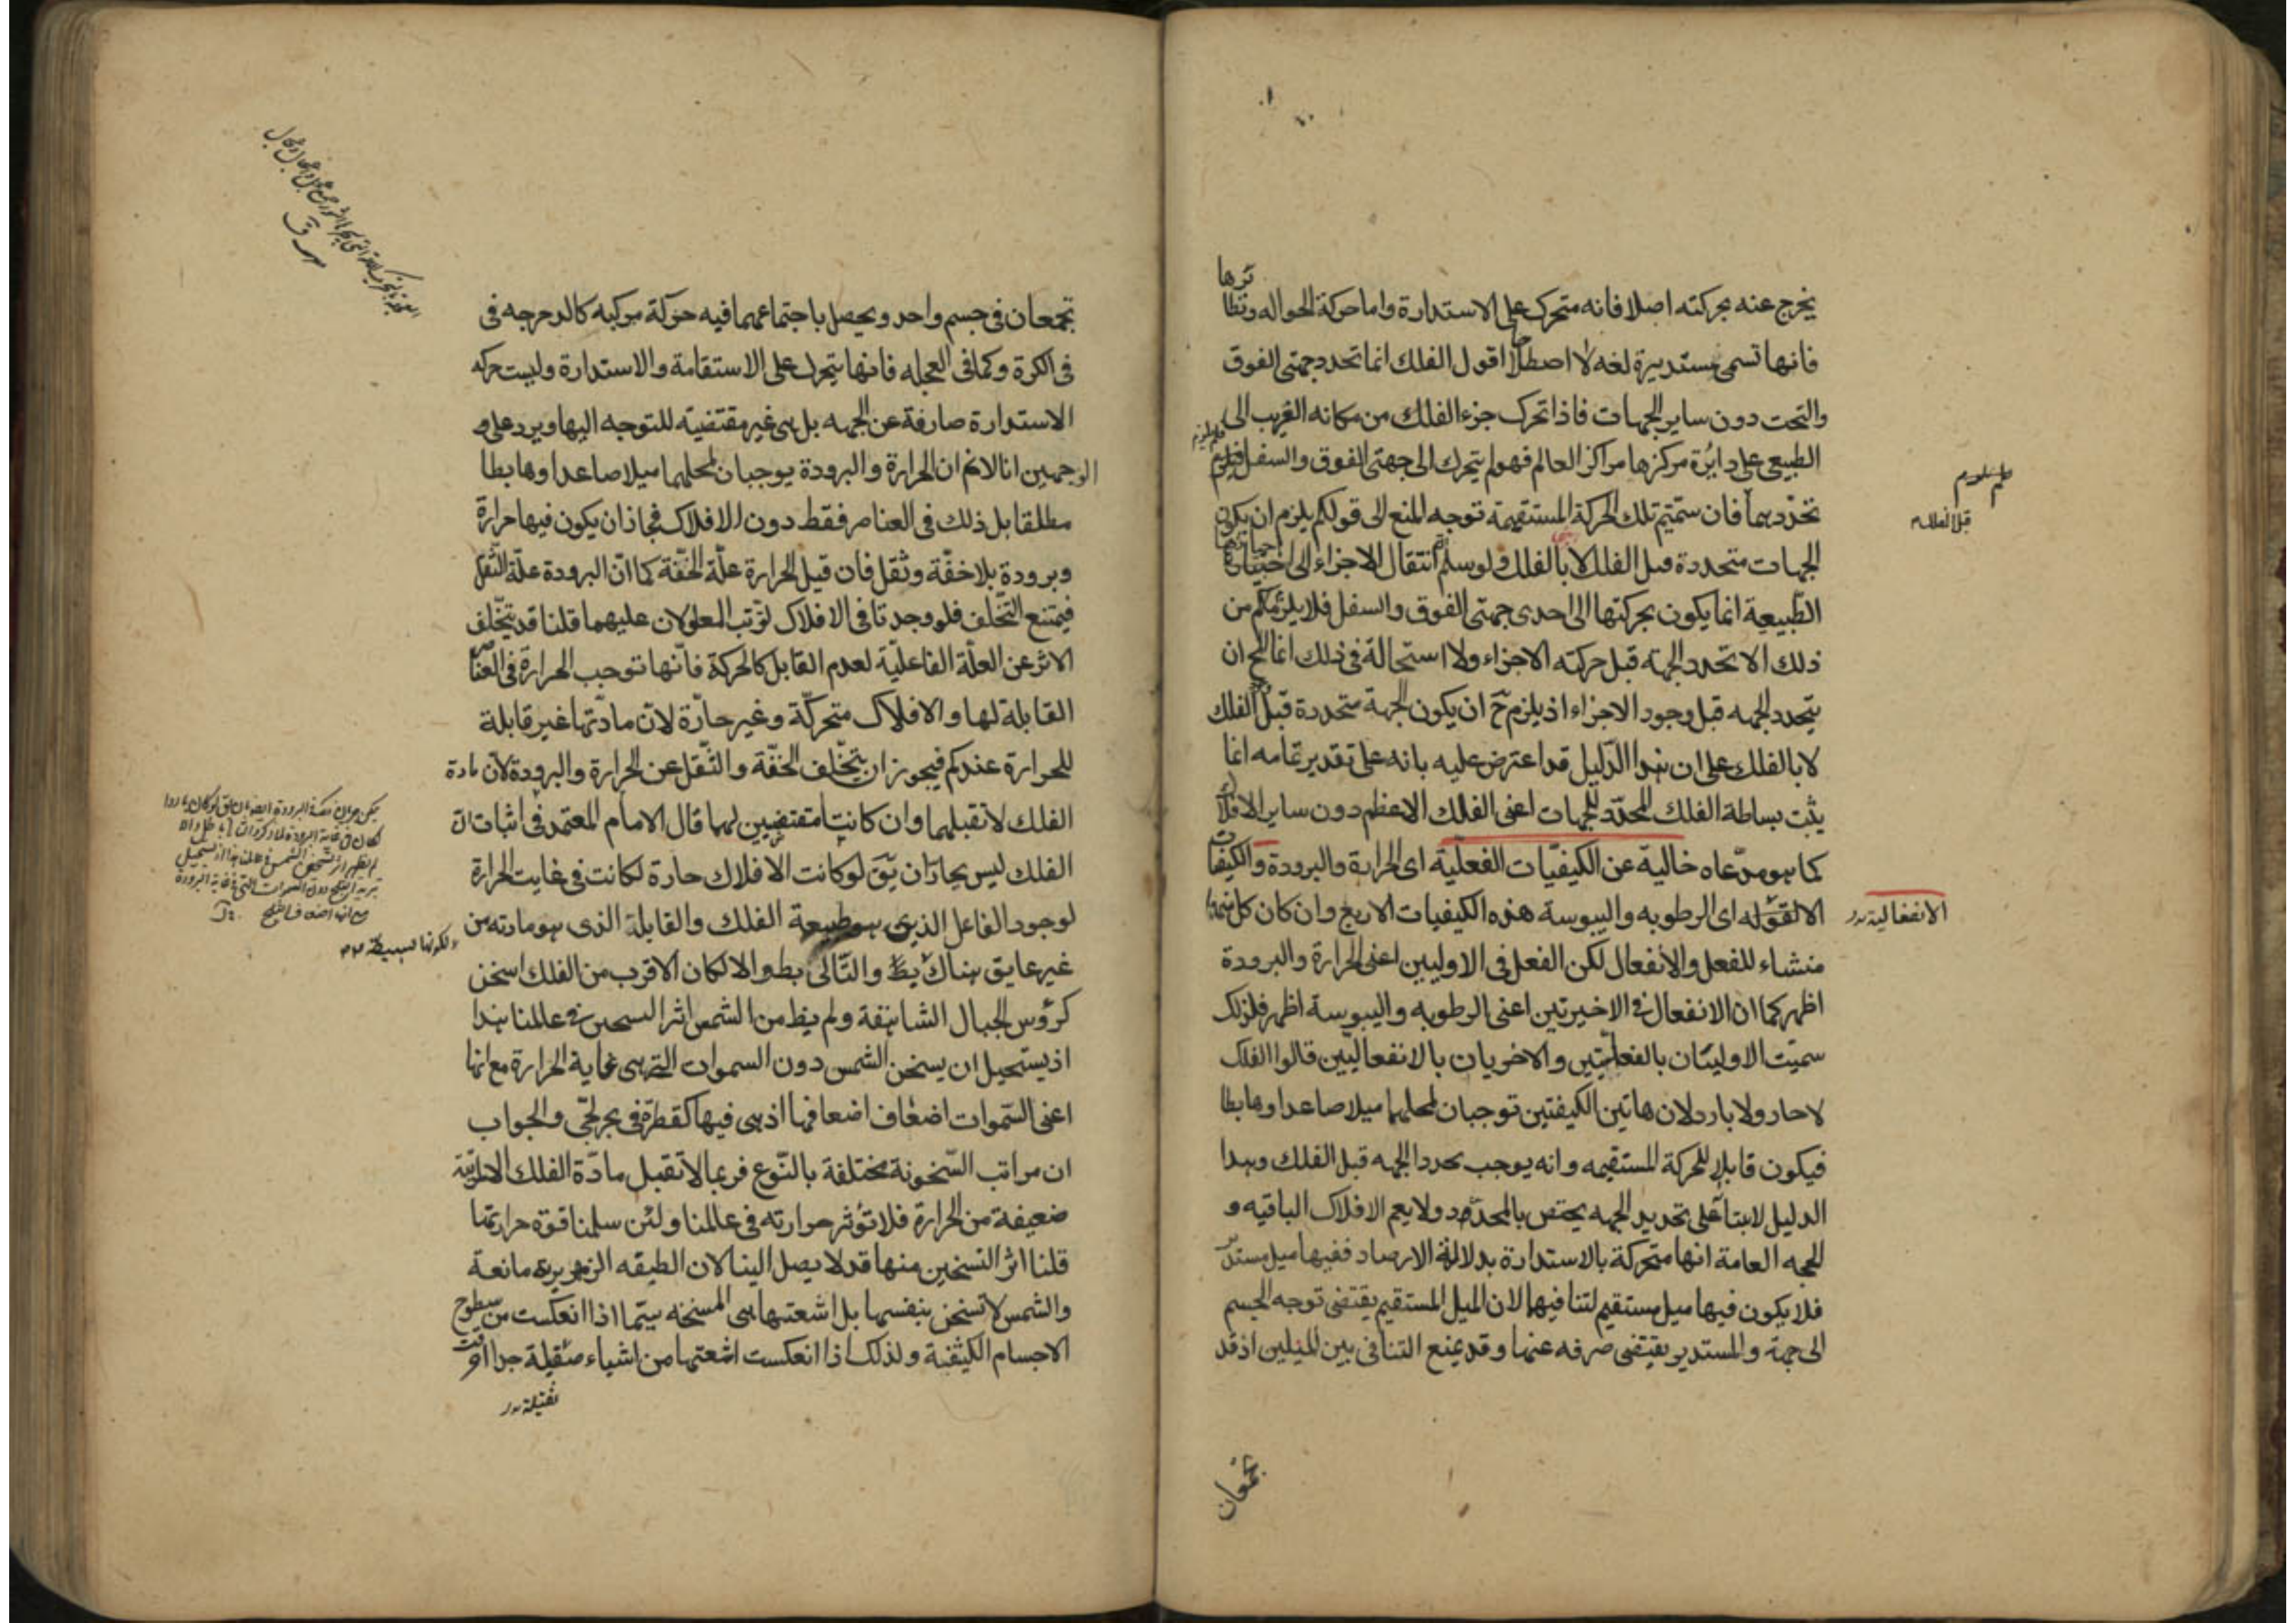 يخرج عنه بحركته اصلا فانه متحرك على الاستدارة واما حركة الحواله ونظا
ئرها
فانها تسمى مستديرة لغه لا اصطلاحا اقول الفلك انما تحدد جهتى الفوق
والتحت دون ساير الجهات فاذا تحرك جزء الفلك من مكانه الغريب الى
الطبيعى على دايرة مركزها مركز العالم فهو لم يتحرك الى جهتى الفوق والسفل فلم يلزم
تحددهما فان سميتم تلك الحركة المستقيمة توجه المنع الى قولكم يلزم ان يكون
الجهات متحددة قبل الفلك لا بالفلك ولو سلم انتقال الاجزاء الى احيازها
الطبيعية انما يكون بحركتها الى احدى جهتى الفوق والسفل فلا يلزمكم من
ذلك الا تحدد الجهة قبل حركته الاجزاء ولا استحالة فى ذلك انما المح ان
يتحدد الجهه قبل وجود الاجزاء اذ يلزم ح ان يكون الجهة متحددة قبل الفلك
لا بالفلك على ان هذا الدليل قد اعترض عليه بانه على تقدير تمامه انما
يثبت بساطة الفلك المحدد للجهات اعنى الفلك الاعظم دون ساير الافلاك
كما هو مدعاه خالية عن الكيفيات الفعلية اى الحرارة والبرودة والكيفيات
الانفعالية
اى الرطوبه واليبوسة هذه الكيفيات الاربع وان كان كل منها
منشاء للفعل والانفعال لكن الفعل فى الاوليين اعنى الحرارة والبرودة
اظهر كما ان الانفعال فى الاخيرتين اعنى الرطوبه واليبوسة اظهر فلذلك
سميت الاوليتان بالفعليتين والاخريان بالانفعاليين قالوا الفلك
لا حار ولا بارد لان هاتين الكيفتين توجبان لمحلهما ميلا صاعدا وهابطا
فيكون قابلا للحركة المستقيمه وانه يوجب تحدد الجهه قبل الفلك وهذا
الدليل لابتنائه على تحديد الجهه يختص بالمحدد ولا يعم الافلاك الباقيه و
الحجه العامة انها متحركة بالاستدارة بدلالة الارصاد ففيها ميل مستدير
فلا يكون فيها ميل مستقيم لتنافيهما لان الميل المستقيم يقتضى توجه الجسم
الى جهة والمستدير يقتضى صرفه عنها وقد يمنع التنافى بين الميلين اذ قد
تجمعان
تجمعان فى جسم واحد ويحصل باجتماعهما فيه حركة مركبه كالدحرجه فى
فى الكرة وكما فى العجله فانها يتحرك على الاستقامة والاستدارة وليست حركه
الاستدارة صارفة عن الجهه بل هى غير مقتضيه للتوجه اليها ويرد على
الوجهين انا لا نم ان الحرارة والبرودة يوجبان لمحلهما ميلا صاعدا وهابطا
مطلقا بل ذلك فى العناصر فقط دون الافلاك فجاز ان يكون فيها حرارة
وبرودة بلا خفة وثقل فان قيل الحرارة علة الخفة كما ان البرودة علة الثقل
فيمتنع التخلف فلو وجدتا فى الافلاك لترتب المعلولان عليهما قلنا قد يتخلف
الاثر عن العلة الفاعلية لعدم القابل كالحركة فانها توجب الحرارة فى العناصر
القابلة لها والافلاك متحركة وغير حارة لان مادتها غير قابلة
للحرارة عندكم فيجوز ان يتخلف الخفة والثقل عن الحرارة والبرودة لان مادة
الفلك لا تقبلهما وان كانتا مقتضيين لهما قال الامام المعتمد فى اثبات ان
الفلك ليس بحار ان يق لو كانت الافلاك حارة لكانت فى غايت الحرارة
لوجود الفاعل الذى هو طبيعة الفلك والقابلة الذى هو مادته من
لكونها بسيطة
غير عايق هناك يظ والتالى بط والا لكان الاقرب من الفلك اسخن
كرؤس الجبال الشاهقة ولم يظ من الشمس اثر السخين فى عالمنا هذا
اذ يستحيل ان يسخن الشمس دون السموات التى هى غاية الحرارة مع انها
اعنى السموات اضعاف اضعافها اذ هى فيها كقطرة فى بحر لجى والجواب
ان مراتب السخونة مختلفة بالنوع فربما لا تقبل مادة الفلك الا مرتبة
ضعيفة من الحرارة فلا تؤثر حرارته فى عالمنا ولئن سلمنا قوة حرارتها
قلنا اثر التسخين منها قد لا يصل الينا لان الطبقه الزمهريرية مانعة
والشمس لا تسخن بنفسها بل اشعتها هى المسخنه سيما اذا انعكست من سطوح
الاجسام الكثيفة ولذلك اذا انعكست اشعتها من اشياء صقيلة جدا احرقت